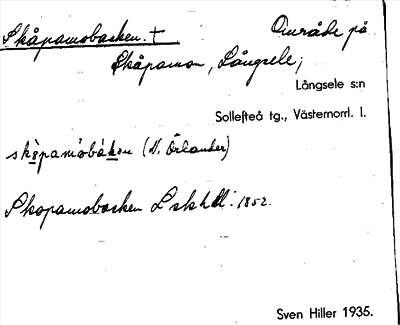 Skåpamobacken. † Område på
Skåpamon, Långsele;
Långsele s:n
Sollefteå tg., Västernorrl. l.
skòpamobàkən (N. Örlander)
Skopamobacken L skhdl: 1852.
Sven Hiller 1935.